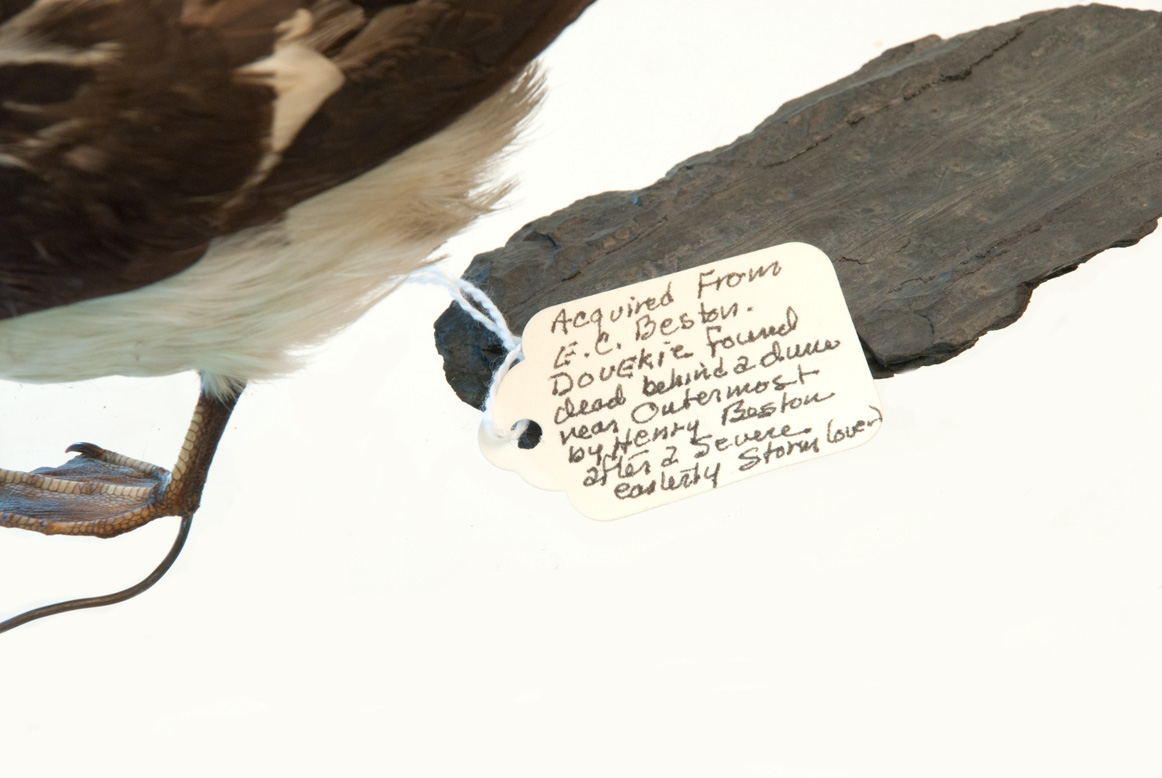 Acquired From
E.C. Beston.
DovEkie found
dead behind a dune
near Outermost
by Henry Beston
after a Severe
easterly Storm (over)